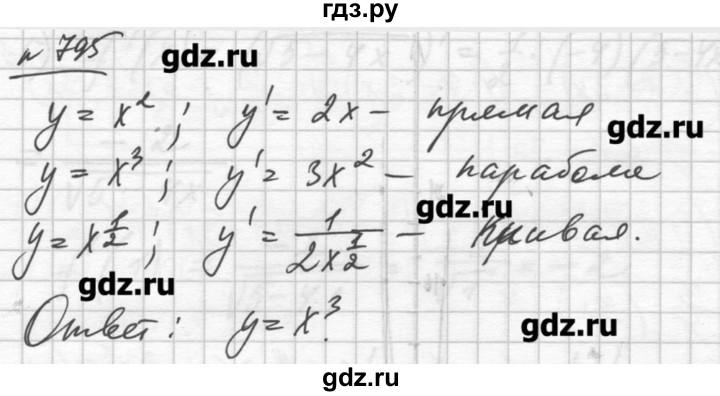 гдз.ру
№ 795
gdz.ru
y = x²; y' = 2x – прямая
gdz.ru
y = x³; y' = 3x² – парабола
gdz.ru
y = x^(1/2); y' = 1/(2x^(1/2)) – кривая.
gdz.ru
Ответ: y = x³.
gdz.ru
gdz.ru